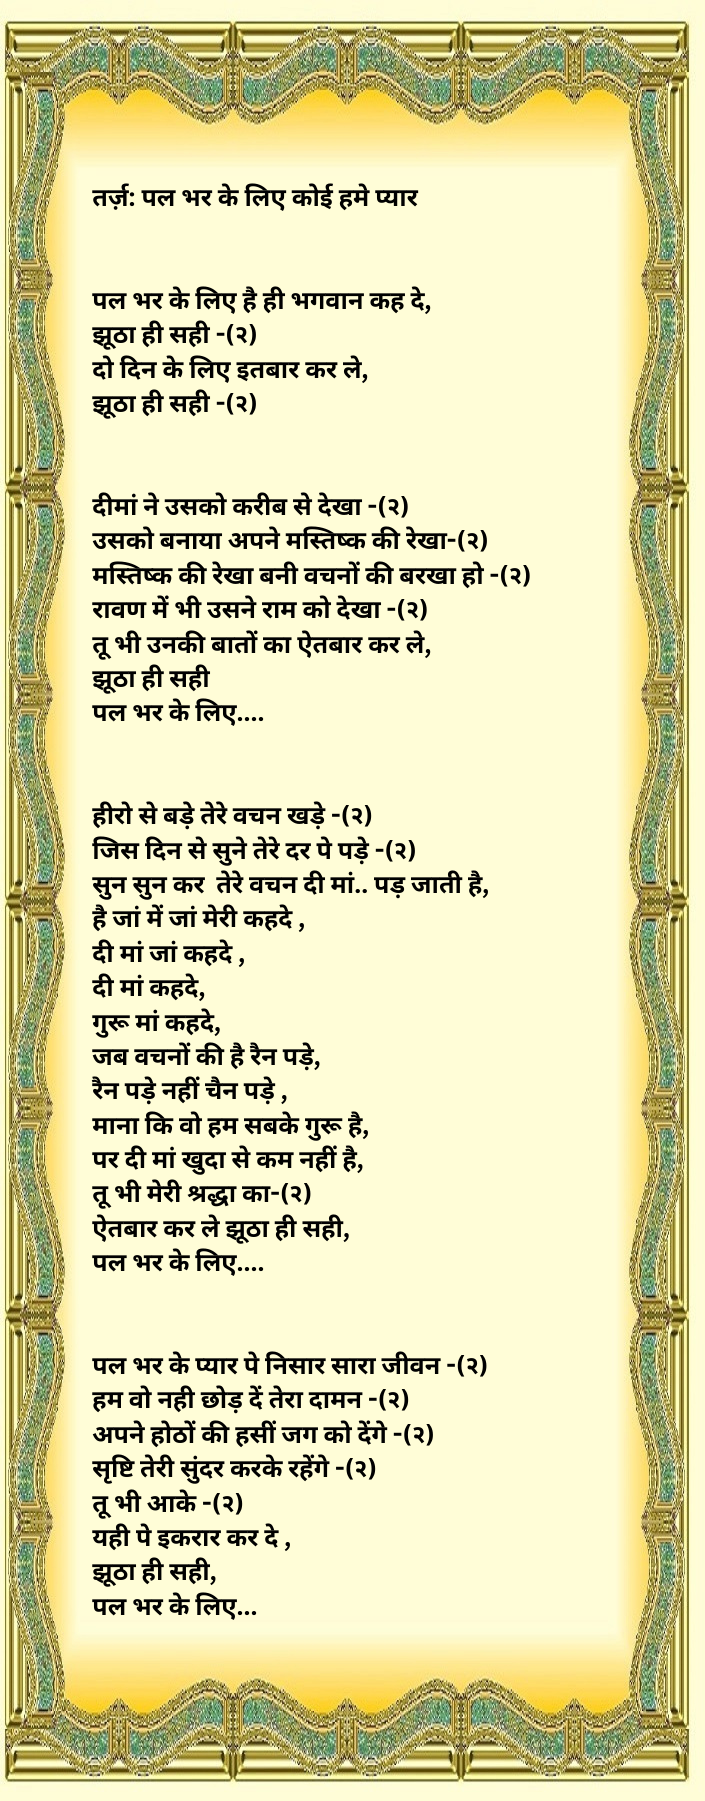 तर्ज़: पल भर के लिए कोई हमे प्यार
पल भर के लिए है ही भगवान कह दे,
झूठा ही सही -(२)
दो दिन के लिए इतबार कर ले,
झूठा ही सही -(२)
दीमां ने उसको करीब से देखा -(२)
उसको बनाया अपने मस्तिष्क की रेखा-(२)
मस्तिष्क की रेखा बनी वचनों की बरखा हो -(२)
रावण में भी उसने राम को देखा -(२)
तू भी उनकी बातों का ऐतबार कर ले,
झूठा ही सही
पल भर के लिए....
हीरो से बड़े तेरे वचन खड़े -(२)
जिस दिन से सुने तेरे दर पे पड़े -(२)
सुन सुन कर  तेरे वचन दी मां.. पड़ जाती है,
है जां में जां मेरी कहदे ,
दी मां जां कहदे ,
दी मां कहदे,
गुरू मां कहदे,
जब वचनों की है रैन पड़े,
रैन पड़े नहीं चैन पड़े ,
माना कि वो हम सबके गुरू है,
पर दी मां खुदा से कम नहीं है,
तू भी मेरी श्रद्धा का-(२)
ऐतबार कर ले झूठा ही सही,
पल भर के लिए....
पल भर के प्यार पे निसार सारा जीवन -(२)
हम वो नही छोड़ दें तेरा दामन -(२)
अपने होठों की हसीं जग को देंगे -(२)
सृष्टि तेरी सुंदर करके रहेंगे -(२)
तू भी आके -(२)
यही पे इकरार कर दे ,
झूठा ही सही,
पल भर के लिए...